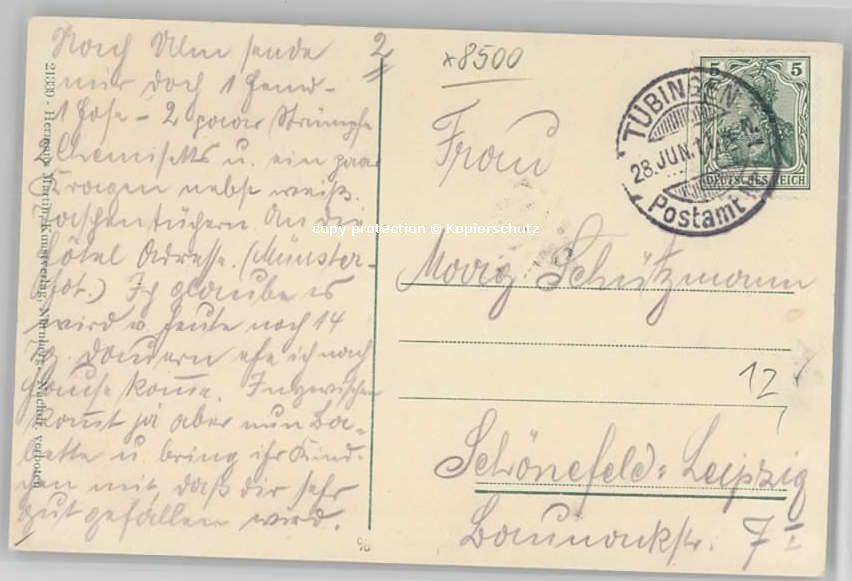 2
Nach Ulm sende
mir doch 1 Hemd -
1 Hose - 2 paar Strümpfe
Chemisetts u. ein paar
Kragen nebst weiß.
Taschentüchern an die
Hôtel Adresse. (Münster-
hot.) Ich glaube es
wird v. heute noch 14
Tg. dauern ehe ich nach
Hause komme. Inzwischen
kommt ja aber nun Ba-
bette u. bring ihr Kind-
chen mit, daß dir sehr
gut gefallen wird.
21330 - Hermann Martin, Kunstverlag, Nürnberg - Nachdr. verboten
96
*8500
TÜBINGEN
28.JUN.11
Postamt №1
5 5
DEUTSCHES REICH
copy protection © Kopierschutz
Frau
Moritz Schützmann
12
Schönefeld-Leipzig
7 I